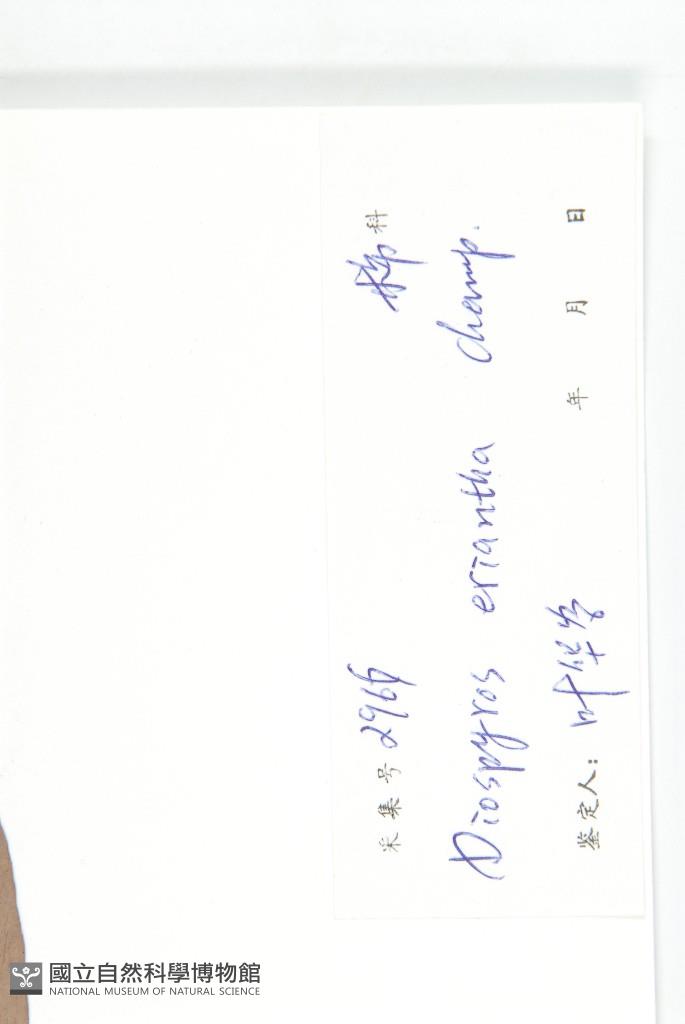 采集号 2966 柿科
Diospyros eriantha champ.
鉴定人: 叶华谷 年 月 日
國立自然科學博物館
NATIONAL MUSEUM OF NATURAL SCIENCE